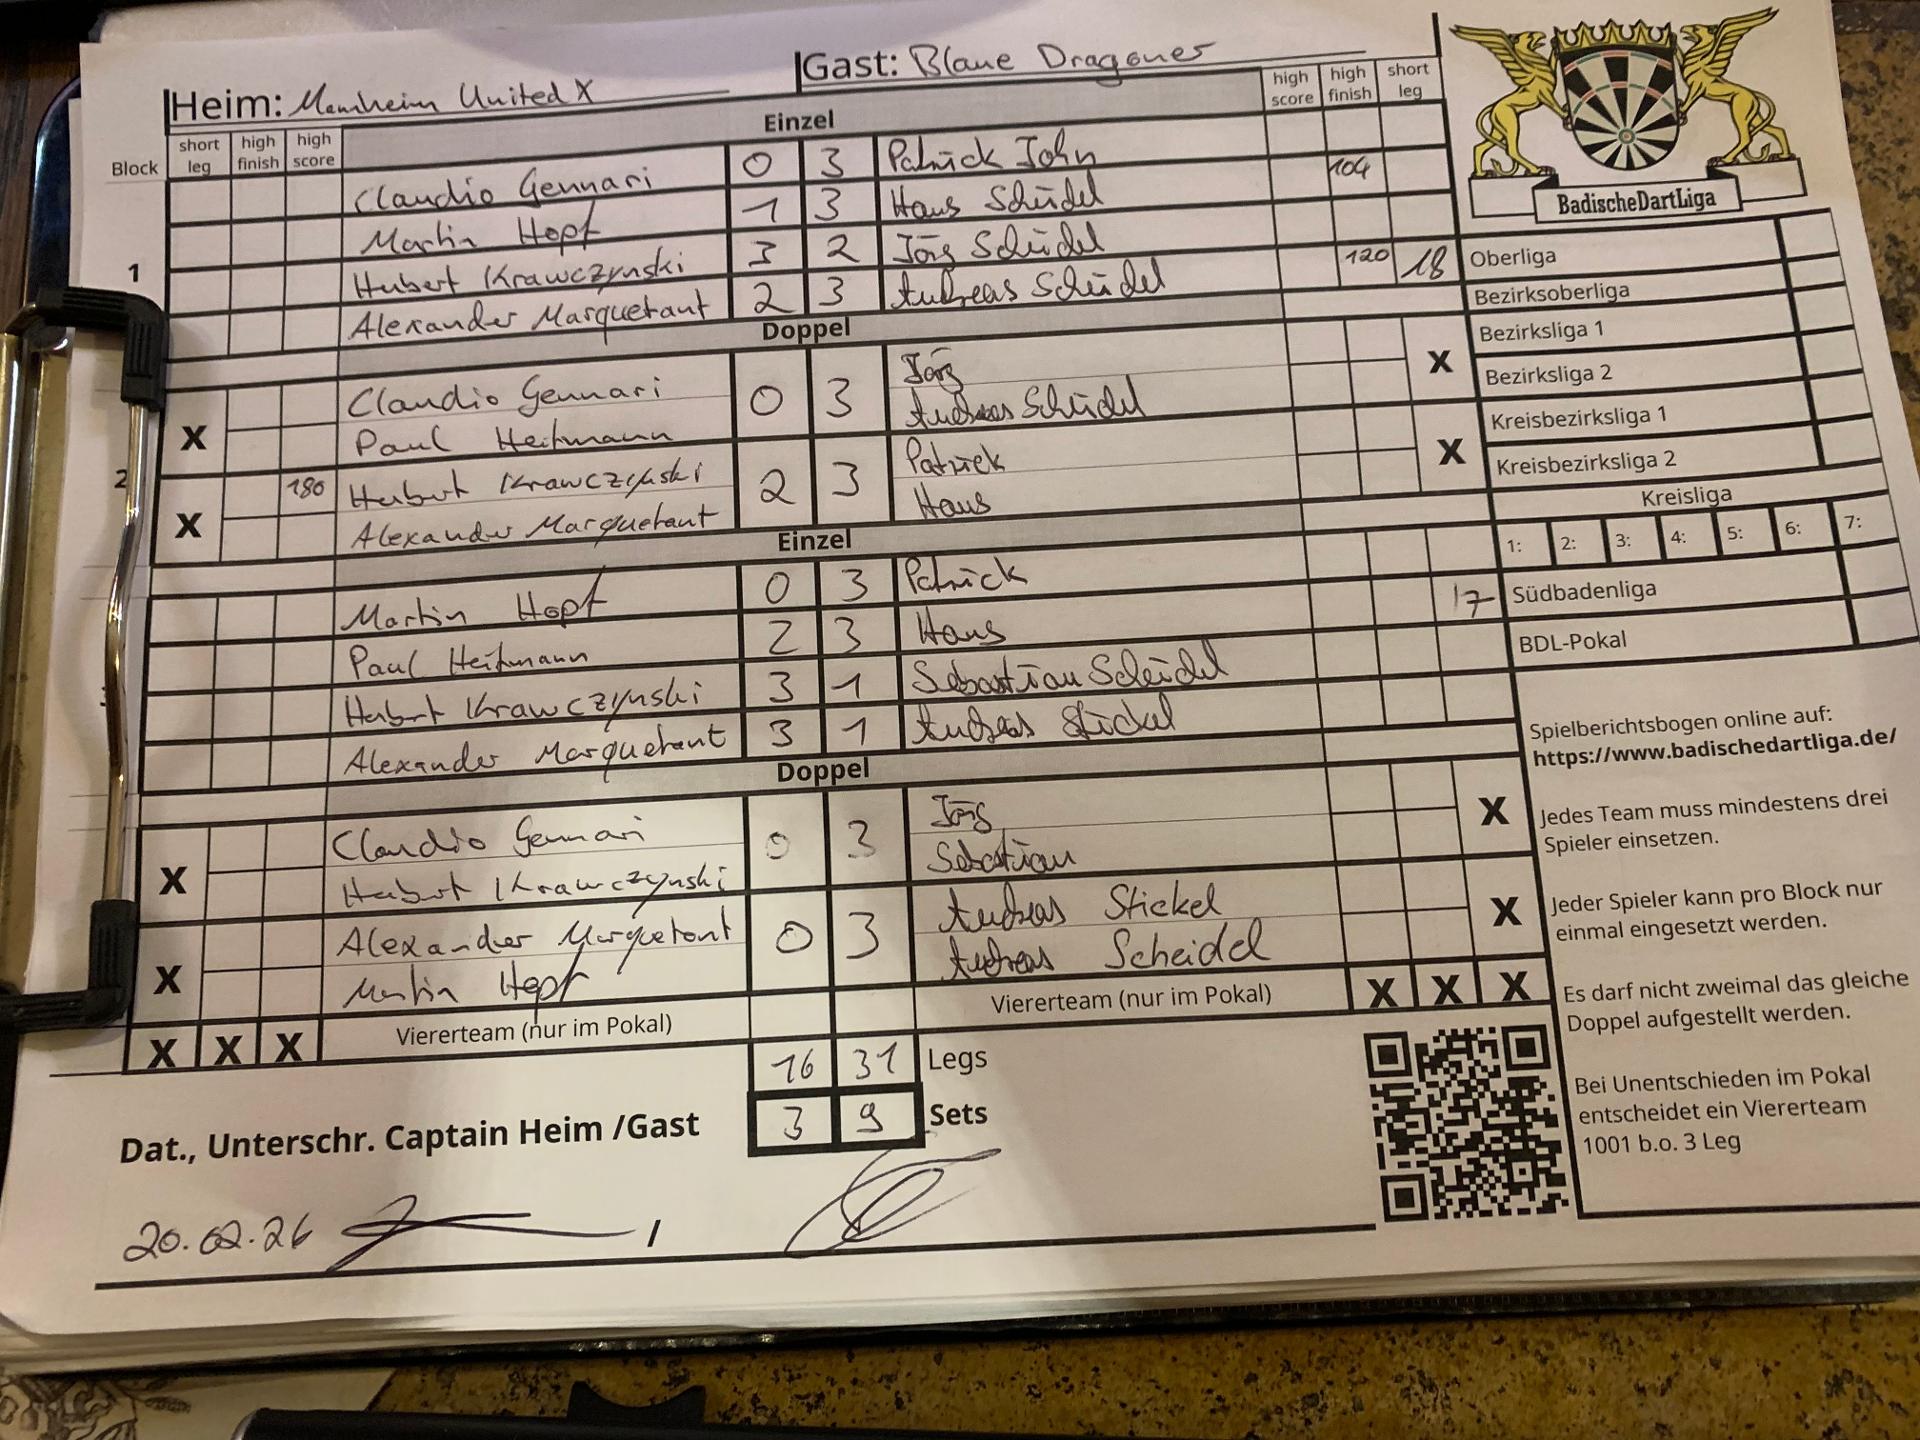 Heim: Mannheim United X
Gast: Blaue Dragoner
high score high finish short leg
Block short leg high finish high score
Einzel
Claudio Gennari 0 3 Patrick John
Martin Hopf 1 3 Hans Scheidel 104
1
Hubert Krawczynski 3 2 Jörg Scheidel
Alexander Marquetant 2 3 Andreas Scheidel 120 18
Doppel
Claudio Gennari 0 3 Jörg
X Paul Heitmann Andreas Scheidel X
2
180 Hubert Krawczynski 2 3 Patrick
X Alexander Marquetant Hans X
Einzel
Martin Hopf 0 3 Patrick
Paul Heitmann 2 3 Hans 17
Hubert Krawczynski 3 1 Sebastian Scheidel
Alexander Marquetant 3 1 Andreas Stickel
Doppel
Claudio Gennari 0 3 Jörg
X Hubert Krawczynski Sebastian X
Alexander Marquetant 0 3 Andreas Stickel
X Martin Hopf Andreas Scheidel X
X X X Viererteam (nur im Pokal) Viererteam (nur im Pokal) X X X
16 31 Legs
3 9 Sets
Dat., Unterschr. Captain Heim /Gast
20.02.26 /
BadischeDartLiga
Oberliga
Bezirksoberliga
Bezirksliga 1
Bezirksliga 2
Kreisbezirksliga 1
Kreisbezirksliga 2
Kreisliga
1: 2: 3: 4: 5: 6: 7:
Südbadenliga
BDL-Pokal
Spielberichtsbogen online auf:
https://www.badischedartliga.de/
Jedes Team muss mindestens drei
Spieler einsetzen.
Jeder Spieler kann pro Block nur
einmal eingesetzt werden.
Es darf nicht zweimal das gleiche
Doppel aufgestellt werden.
Bei Unentschieden im Pokal
entscheidet ein Viererteam
1001 b.o. 3 Leg